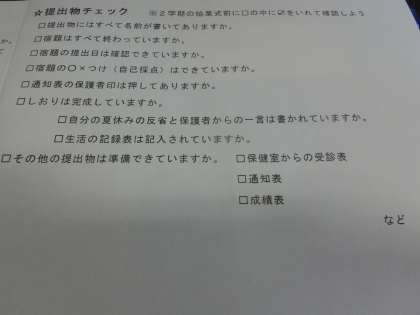 ☆提出物チェック ※２学期の始業式前に□の中に☑をいれて確認しよう
□提出物にはすべて名前が書いてありますか。
□宿題はすべて終わっていますか。
□宿題の提出日は確認できていますか。
□宿題の〇×つけ（自己採点）はできていますか。
□通知表の保護者印は押してありますか。
□しおりは完成していますか。
□自分の夏休みの反省と保護者からの一言は書かれていますか。
□生活の記録表は記入されていますか。
□その他の提出物は準備できていますか。 □保健室からの受診表
□通知表
□成績表
など